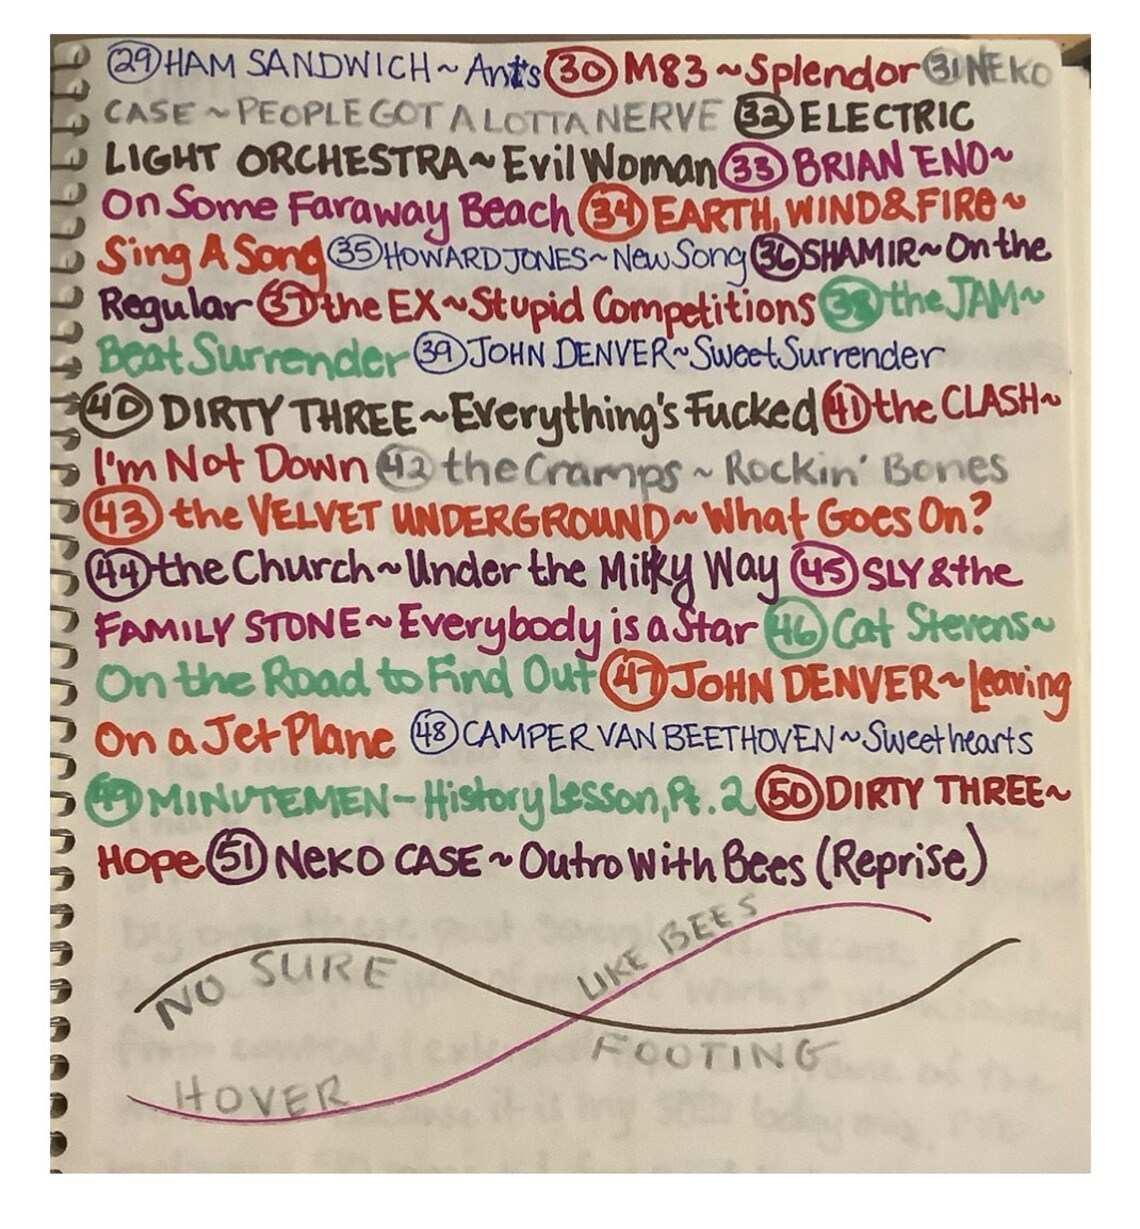 29 HAM SANDWICH ~ Ants 30 M83 ~ Splendor 31 NEKO
CASE ~ PEOPLE GOT A LOTTA NERVE 32 ELECTRIC
LIGHT ORCHESTRA ~ Evil Woman 33 BRIAN ENO ~
On Some Faraway Beach 34 EARTH, WIND & FIRE ~
Sing A Song 35 HOWARD JONES ~ New Song 36 SHAMIR ~ On the
Regular 37 the EX ~ Stupid Competitions 38 the JAM ~
Beat Surrender 39 JOHN DENVER ~ Sweet Surrender
40 DIRTY THREE ~ Everything's Fucked 41 the CLASH ~
I'm Not Down 42 the Cramps ~ Rockin' Bones
43 the VELVET UNDERGROUND ~ What Goes On?
44 the Church ~ Under the Milky Way 45 SLY & the
FAMILY STONE ~ Everybody is a Star 46 Cat Stevens ~
On the Road to Find Out 47 JOHN DENVER ~ Leaving
On a Jet Plane 48 CAMPER VAN BEETHOVEN ~ Sweethearts
49 MINUTEMEN - History Lesson, Pt. 2 50 DIRTY THREE ~
Hope 51 NEKO CASE ~ Outro With Bees (Reprise)
NO SURE FOOTING
HOVER LIKE BEES